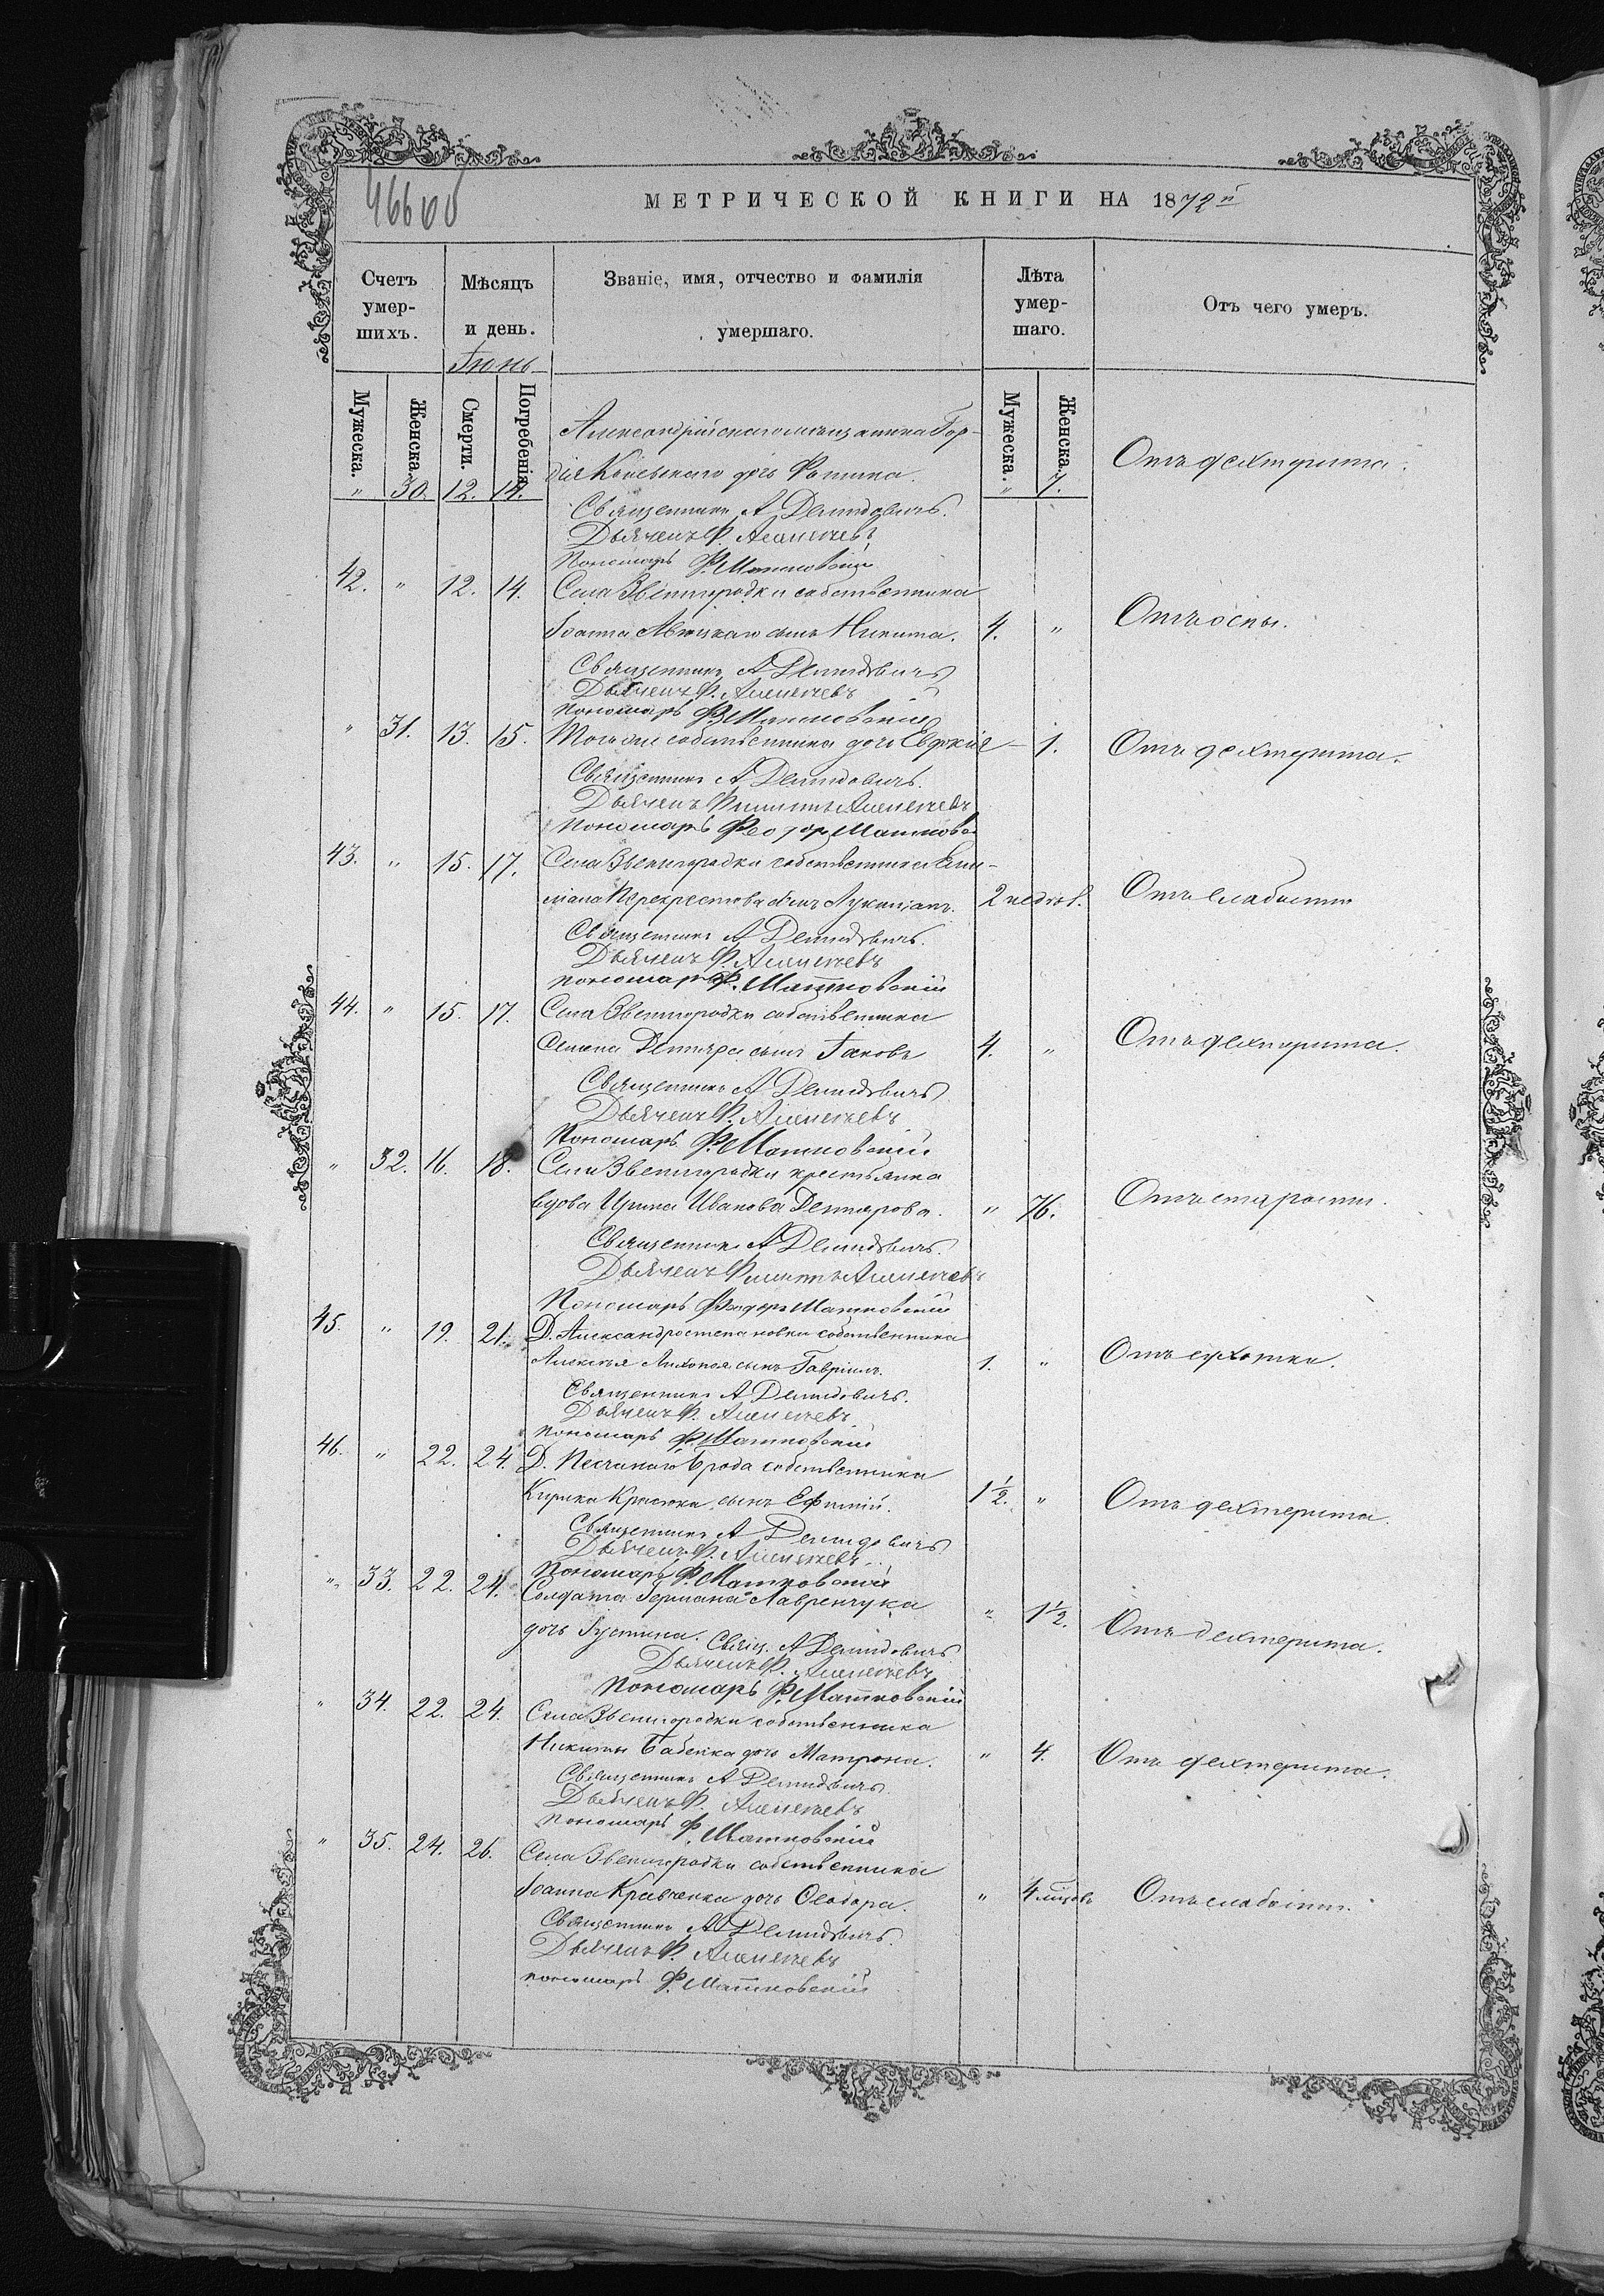 466 об
МЕТРИЧЕСКОЙ КНИГИ НА 1872й
Счетъ умер-шихъ.
Мѣсяцъ и день.
Званіе, имя, отчество и фамилія умершаго.
Лѣта умер-шаго.
Отъ чего умеръ.
Іюнь
Мужеска. Женска. Смерти. Погребенія. Мужеска. Женска.
Александрійскаго мѣщанина Гор-
" 30. 12. 14. дія дочь Фотина. " 7. Отъ дехтерита.
Священникъ А Демидовичъ.
Дьячекъ Ф.
Пономарь Ф. Матковскій
42. " 12. 14. Села Звенигородки собственника
Іоанна сынъ Никита. 4. " Отъ оспы.
Священникъ А Демидовичъ
Дьячекъ Ф.
Пономарь Ф. Матковскій
" 31. 13. 15. Того же собственника дочь Евдокія 1. Отъ дехтерита.
Священникъ А Демидовичъ.
Дьячекъ Филиппъ
Пономарь Феодор
43. " 15. 17. Села Звенигородки собственника Еми-
ліана Перехрестова сынъ Лукіанъ. 2 недѣл. Отъ слабости
Священникъ А Демидовичъ.
Дьячекъ Ф.
пономарь Ф. Матковскій
44. " 15. 17. Села Звенигородки собственника
Семена сынъ Іаковъ 4. " Отъ дехтерита.
Священникъ А Демидовичъ
Дьячекъ Ф.
Пономарь Ф. Матковскій
" 32. 16. 18. Села Звенигородки крестьянка
вдова Ирина Иванова . " 76. Отъ старости.
Священникъ А Демидовичъ.
Дьячекъ Филиппъ
Пономарь Феодоръ Матковскій
45. " 19. 21. Д. Александростепановки собственника
Алексѣя сынъ Гавріилъ. 1. " Отъ сухотки.
Священникъ А Демидовичъ.
Дьячекъ Ф.
пономарь Ф. Матковскій
46. " 22. 24. Д. Песчанаго Брода собственника
Кирика сынъ Ефимій. 1½. " Отъ дехтерита.
Священникъ А Демидовичъ
Дьячекъ Ф.
Пономарь Ф. Матковскій
" 33. 22. 24. Солдата Германа Лавренчука
дочь Іустина. " 1½. Отъ дехтерита.
Свящ. А Демидовичъ
Дьячекъ Ф.
Пономарь Ф. Матковскій
" 34. 22. 24. Села Звенигородки собственника
Никиты Бабенка дочь Матрона. " 4. Отъ дехтерита.
Священникъ А Демидовичъ
Дьячекъ Ф.
пономарь Ф. Матковскій
" 35. 24. 26. Села Звенигородки собственника
Іоанна Кравченка дочь Ѳеодора. " 4 мѣсяцовъ Отъ слабости.
Священникъ А Демидовичъ.
Дьячекъ Ф.
пономарь Ф. Матковскій